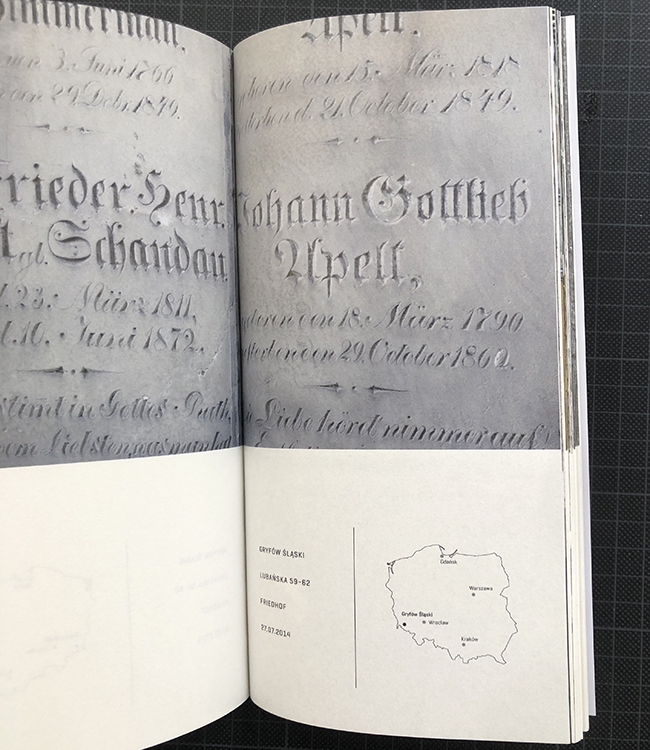 Zimmerman.
den 3. Juni 1766
den 29. Debr. 1849.
Frieder. Henr.
gl. Schandau.
23. März 1811,
10. Juni 1872.
stimt in Gottes
Apelt.
boren den 15. März 1818
storben d. 21. October 1849.
Johann Gottlieb
Apelt,
geboren den 18. März 1790
gestorben den 29. October 1860.
Liebe hörd nimmer auf
GRYFÓW ŚLĄSKI
LUBAŃSKA 59-62
FRIEDHOF
27.07.2014
Gdańsk
Warszawa
Gryfów Śląski
Wrocław
Kraków